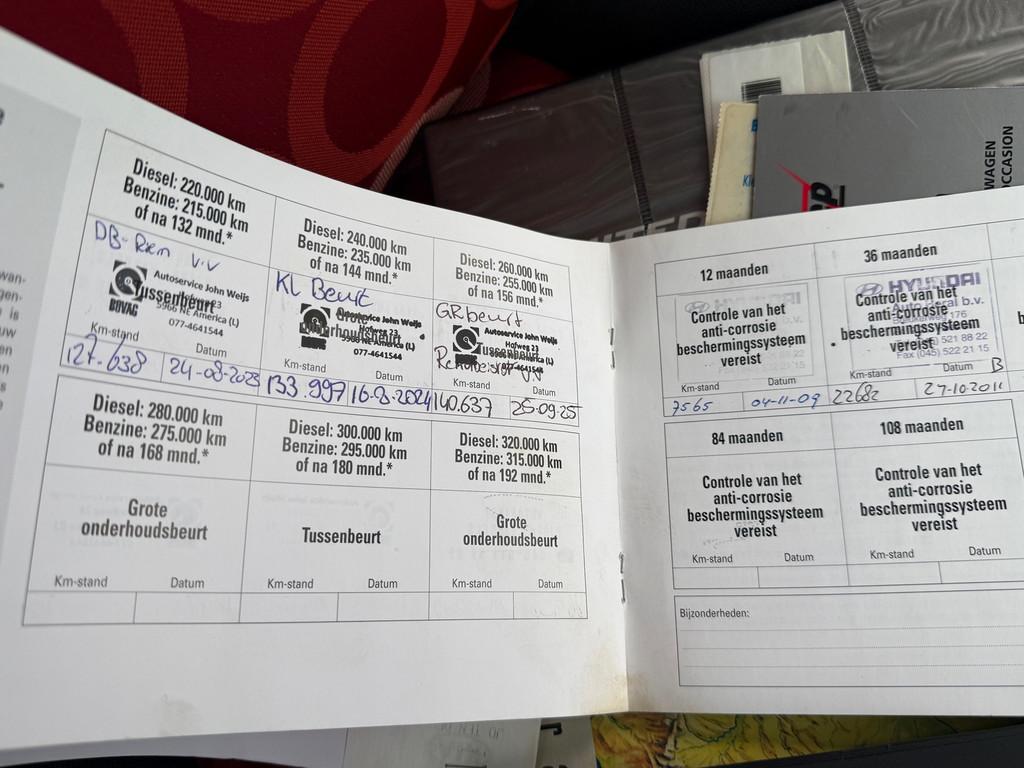 Diesel: 220.000 km
Benzine: 215.000 km
of na 132 mnd.*
DB- Rem V.V
Autoservice John Weijs
Hofweg 23
5966 NE America (L)
077-4641544
BOVAG
Tussenbeurt
Km-stand Datum
127.638 24-08-2023
Diesel: 240.000 km
Benzine: 235.000 km
of na 144 mnd.*
KL Beurt
Autoservice John Weijs
Hofweg 23
5966 NE America (L)
077-4641544
Grote
onderhoudsbeurt
Km-stand Datum
133.997 16-8-2024
Diesel: 260.000 km
Benzine: 255.000 km
of na 156 mnd.*
GR beurt
Autoservice John Weijs
Hofweg 23
5966 NE America (L)
077-4641544
Tussenbeurt
Km-stand Datum
140.637 25-09-25
Diesel: 280.000 km
Benzine: 275.000 km
of na 168 mnd.*
Grote
onderhoudsbeurt
Km-stand Datum
Diesel: 300.000 km
Benzine: 295.000 km
of na 180 mnd.*
Tussenbeurt
Km-stand Datum
Diesel: 320.000 km
Benzine: 315.000 km
of na 192 mnd.*
Grote
onderhoudsbeurt
Km-stand Datum
12 maanden
HYUNDAI
Controle van het
anti-corrosie
beschermingssysteem
vereist
Km-stand Datum
7565 04-11-09
36 maanden
HYUNDAI
Controle van het
anti-corrosie
beschermingssysteem
vereist
521 88 22
Fax (045) 522 21 15
Km-stand Datum B
22682 27-10-2011
84 maanden
Controle van het
anti-corrosie
beschermingssysteem
vereist
Km-stand Datum
108 maanden
Controle van het
anti-corrosie
beschermingssysteem
vereist
Km-stand Datum
Bijzonderheden:
WAGEN
OCCASION